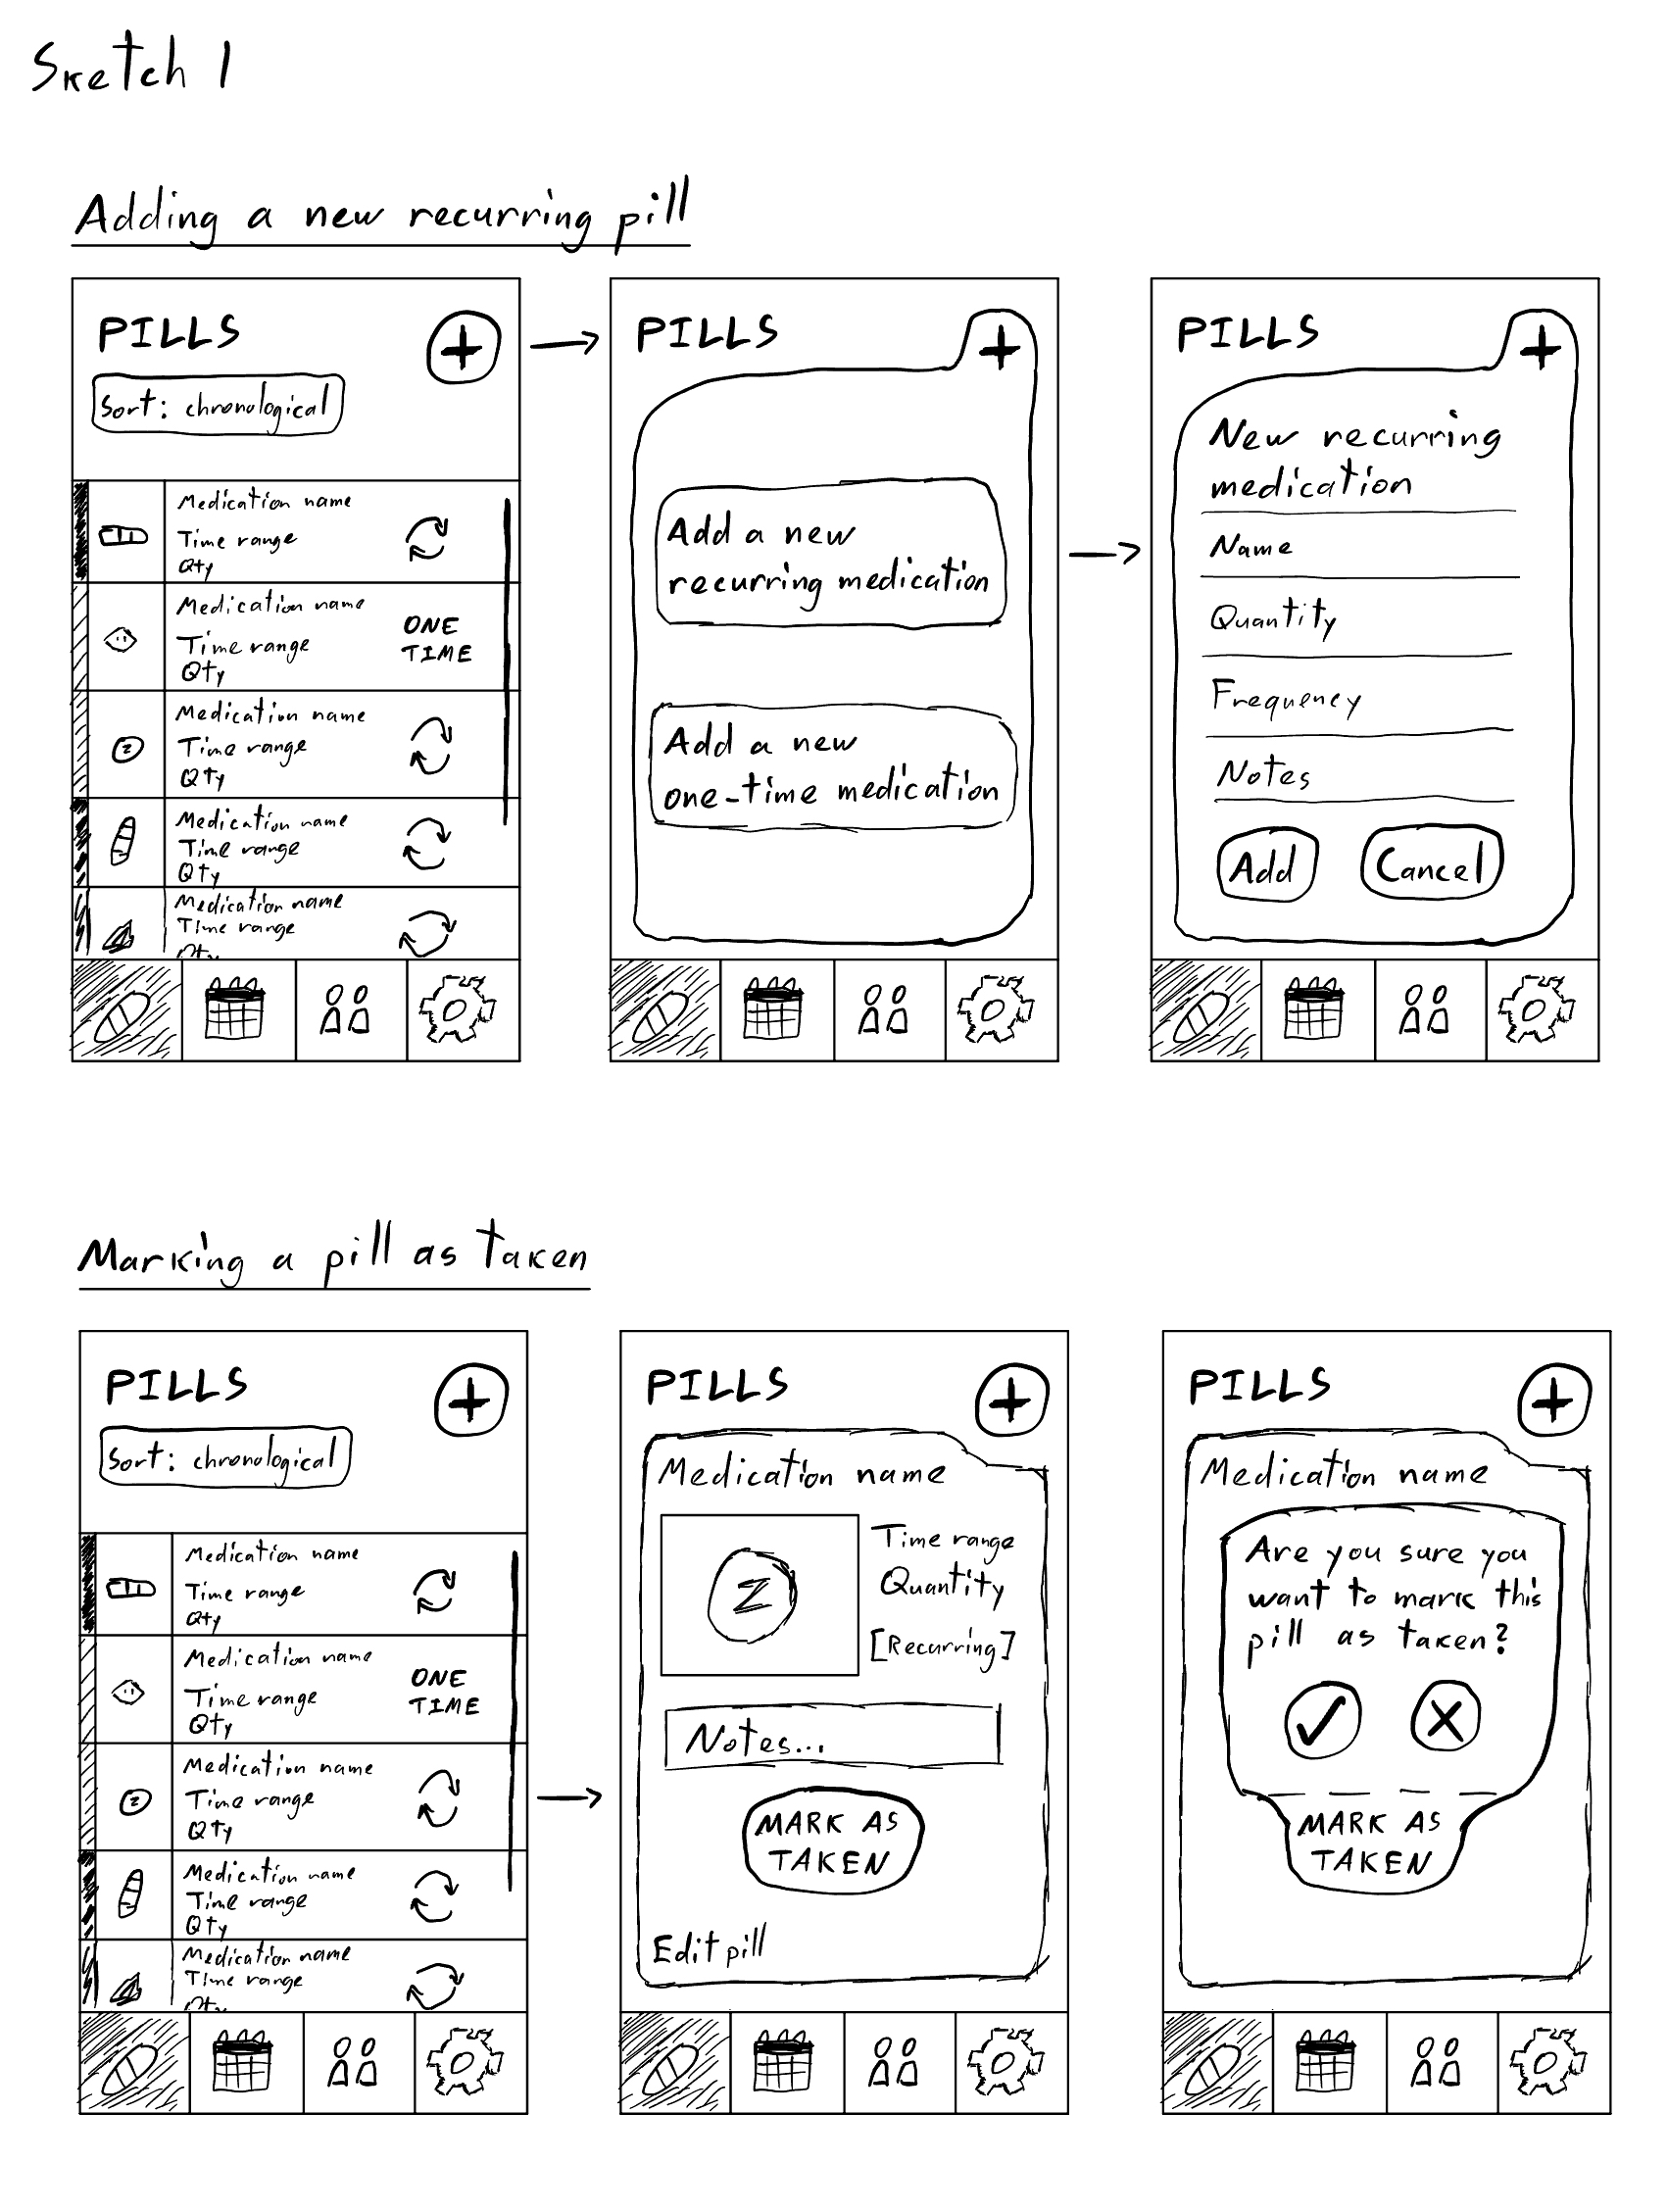 Sketch 1
Adding a new recurring pill
PILLS
+
Sort: chronological
Medication name
Time range
Qty
Medication name
Time range
Qty
ONE
TIME
Medication name
Time range
Qty
Medication name
Time range
Qty
Medication name
Time range
Qty
PILLS
+
Add a new
recurring medication
Add a new
one-time medication
PILLS
+
New recurring
medication
Name
Quantity
Frequency
Notes
Add
Cancel
Marking a pill as taken
PILLS
+
Sort: chronological
Medication name
Time range
Qty
Medication name
Time range
Qty
ONE
TIME
Medication name
Time range
Qty
Medication name
Time range
Qty
Medication name
Time range
Qty
PILLS
+
Medication name
Z
Time range
Quantity
[Recurring]
Notes...
MARK AS
TAKEN
Edit pill
PILLS
+
Medication name
Are you sure you
want to mark this
pill as taken?
MARK AS
TAKEN